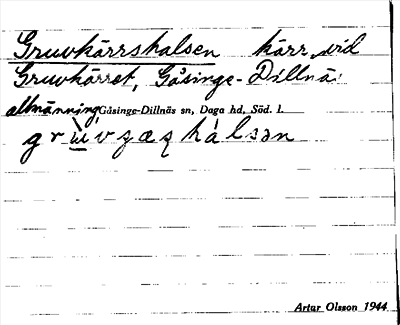 Gruvkärrshalsen kärr vid
Gruvkärret, Gåsinge-Dillnäs
allmänning Gåsinge-Dillnäs sn, Daga hd, Söd. l.
Artur Olsson 1944